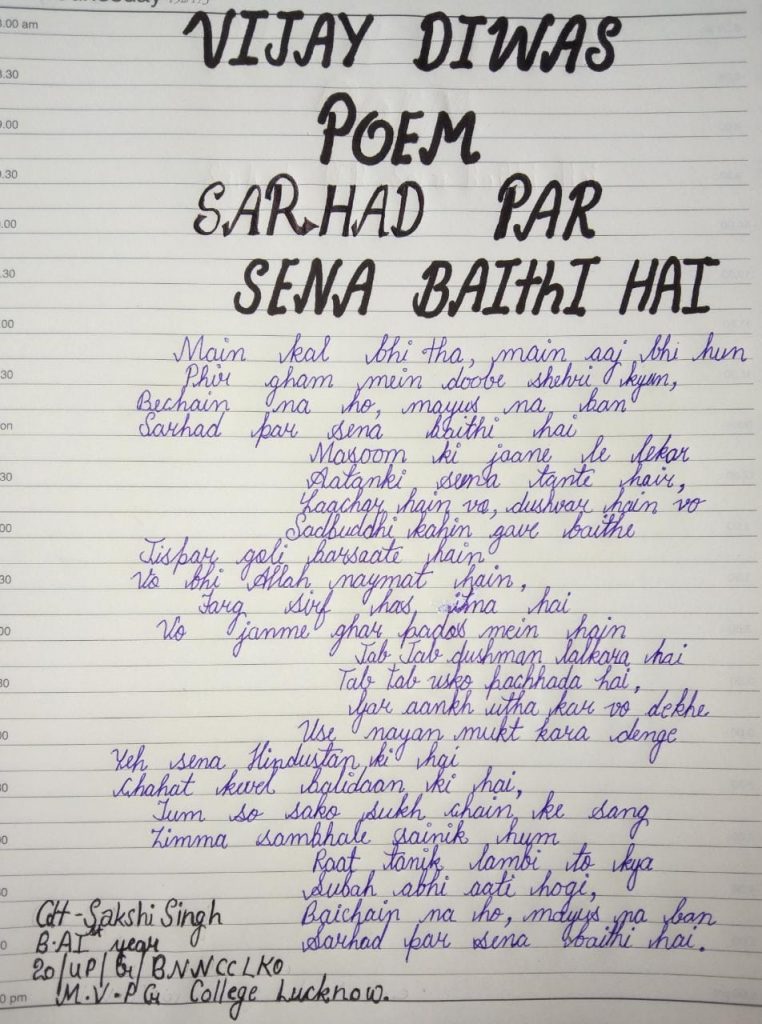 VIJAY DIWAS
POEM
SARHAD PAR
SENA BAIthI HAI
8.00 am
Main kal bhi tha, main aaj bhi hun
Phir gham mein doobe shehri kyun,
Bechain na ho, mayus na ban
Sarhad par sena baithi hai
Masoom ki jaane le lekar
Aatanki seena tante hain,
Laachar hain vo, dushvar hain vo
Sadbuddhi kahin gavr baithe
Jispar goli barsaate hain
Vo bhi Allah naymat hain,
Farq sirf bas itna hai
Vo janme ghar pados mein hain
Jab Jab dushman lalkara hai
Tab tab usko pachhada hai,
Gar aankh utha kar vo dekhe
Use nayan mukt kara denge
Yeh sena Hindustan ki hai
Chahat kevel balidaan ki hai,
Tum so sako sukh chain ke sang
Zimma sambhale sainik hum
Raat tanik lambi to kya
Subah abhi aati hogi,
Baichain na ho, mayus na ban
Sarhad par sena baithi hai.
Cdt-Sakshi Singh
B.A Ist year
20/UP/Gr/BNNCCLKO
M.V.PG College Lucknow.